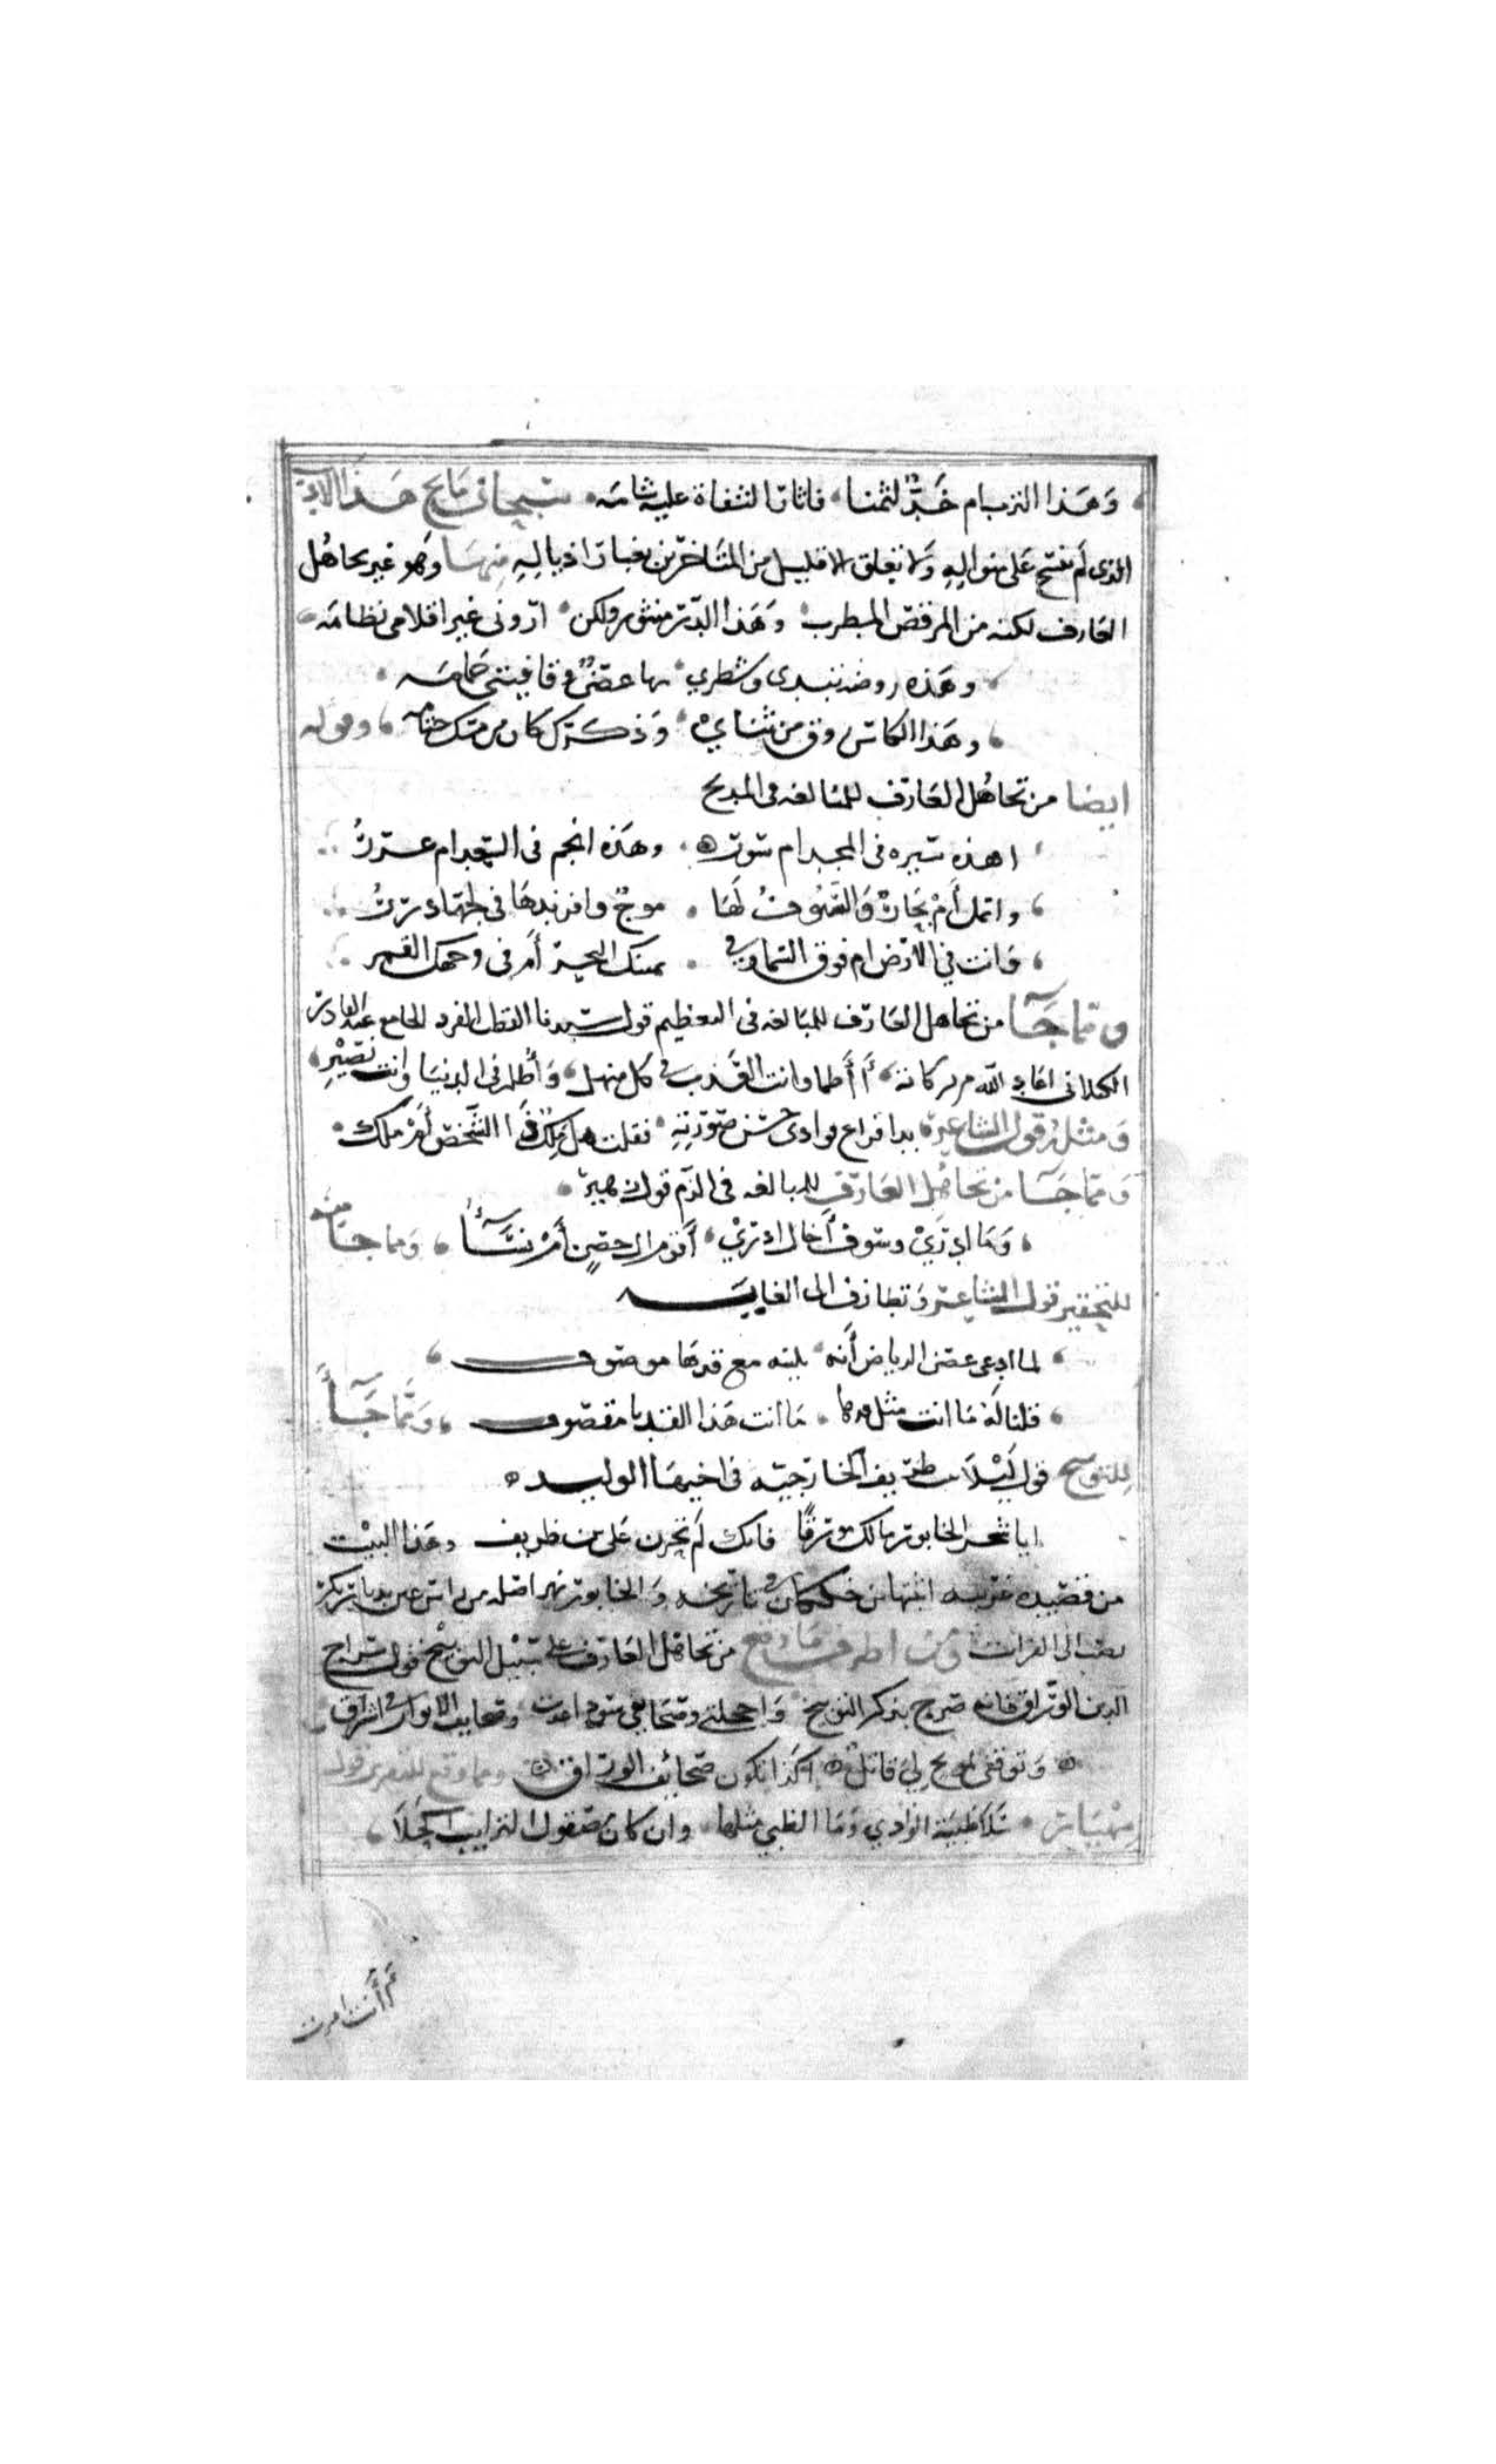 وهذا الترب ام خد لثمنا فاثار الشفاة عليه شامه سبحان مانح هذا الادب
الذي لم ينسج على منواليه ولا تعلق الا قليل من المتاخرين بغبار اذياليه منها وهو غير تجاهل
العارف لكنه من المرقص المطرب وهذا الدر منثور ولكن اروني غير اقلامي نظامه
وهذه روضة تندى وسطري بها غصن وقافيتي حمامه
وهذا الكاس روق من ثناي وذكرك كان من مسك ختامه وقوله
ايضا من تجاهل العارف للمبالغه في المديح
اهذه سيره في المجد ام سور وهذه انجم في السعد ام غرر
وانمل ام بحار والسيوف لها موج وافرندها في لجها درر
وانت في الارض ام فوق السما وفي يمينك البحر أم في وجهك القمر
ومما جآ من تجاهل العارف للمبالغه في التعظيم قول سيدنا القطب الفرد الجامع عبد القادر
الكيلاني اعاد الله من بركاته أأظما وانت العذب في كل منهل وأظلم في الدنيا وانت نصير
ومثله قول الشاعر بدا فراع فوادي حسن صورته فقلت هل ملك ذا الشخص أم ملك
ومما جآ من تجاهل العارف للمبالغه في الذم قول زهير
وما ادري وسوف أخال ادري أقوم ال حصن أم نسآء ومما جا منه
للتحقير قول الشاعر وتظارف الى الغايه
لما ادعى غصن الرياض أنه بلينه مع قدها موصوف
قلنا له ما انت مثل قدها ما انت هذا القد يا مقصوف ومما جآ
للتوبيخ قول ليلا بنت طريف الخارجيه في اخيها الوليد
ايا شجر الخابور مالك مورقا فانك لم تحزن على بن طريف وهذا البيت
من قصيده غريبه اثبتها بن خلكان في تاريخه والخابور نهر اصله من راس عين بديار بكر
يصب الى الفرات ومن اظرف ما وقع من تجاهل العارف على سبيل التوبيخ قول سراج
الدين الوراق فانه صرح بذكر التوبيخ واخجلتي وصحايفي سود اغدت وصحايف الابرار في اشراق
وتوقفي لموبخ لي قائل اكذا تكون صحائف الوراق ومما وقع للتقرير قول
مهيار سلا ظبية الوادي وما الظبي مثلها وان كان مصقول الترايب اكحلا
أأنت امرت